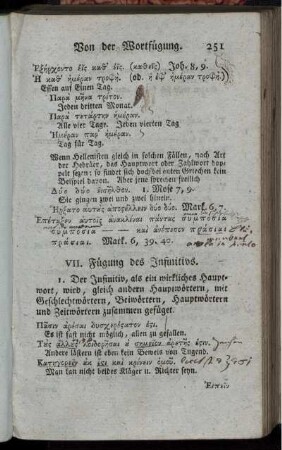 Von der Wortfügung. 251
Ἐξήρχοντο εἷς καθ᾽ εἷς. (καθεῖς) Joh. 8, 9.
Ἡ καθ᾽ ἡμέραν τροφή. (od. ἡ ἐφ᾽ ἡμέραν τροφή.)
Essen auf Einen Tag.
Παρὰ μῆνα τρίτον.
Jeden dritten Monat.
Παρὰ τετάρτην ἡμέραν.
Alle vier Tage. Jeden vierten Tag
Ἡμέραν παρ᾽ ἡμέραν.
Tag für Tag.
Wenn Hellenisten gleich in solchen Fällen, nach Art
der Hebräer, das Hauptwort oder Zahlwort dop-
pelt setzen: so findet sich doch bei ächten Griechen kein
Beispiel davon. Aber jene sprechen freilich
Δύο δύο εἰσῆλθον. 1. Mose 7, 9.
Sie gingen zwei und zwei hinein.
Ἤρξατο αὐτοὺς ἀποστέλλειν δύο δύο. Mark. 6, 7.
Ἐπέταξεν αὐτοῖς ἀνακλῖναι πάντας συμπόσια
συμπόσια — — καὶ ἀνέπεσον πρασιαὶ
πρασιαί. Mark. 6, 39. 40.
VII. Fügung des Infinitivs.
1. Der Infinitiv, als ein wirkliches Haupt-
wort, wird, gleich andern Hauptwörtern, mit
Geschlechtwörtern, Beiwörtern, Hauptwörtern
und Zeitwörtern zusammen gefüget.
Πᾶσιν ἀρέσαι δυσχερέστατόν ἐστι.
Es ist fast nicht möglich, allen zu gefallen.
Τὸ ἄλλους λοιδορῆσαι ὀ σημεῖον ἀρετῆς ἐστιν.
Andere lästern ist eben kein Beweis von Tugend.
Κατηγορεῖν ἅμα καὶ κρίνειν
Man kan nicht beides Kläger u. Richter seyn.
Εἰπεῖν